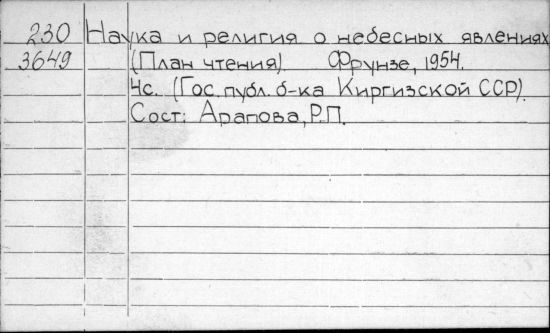 230 Наука и религия о небесных явлениях
3649 (План чтения) Фрунзе, 1954.
4с. (Гос. публ. б-ка Киргизской ССР).
Сост: Арапова, Р.П.